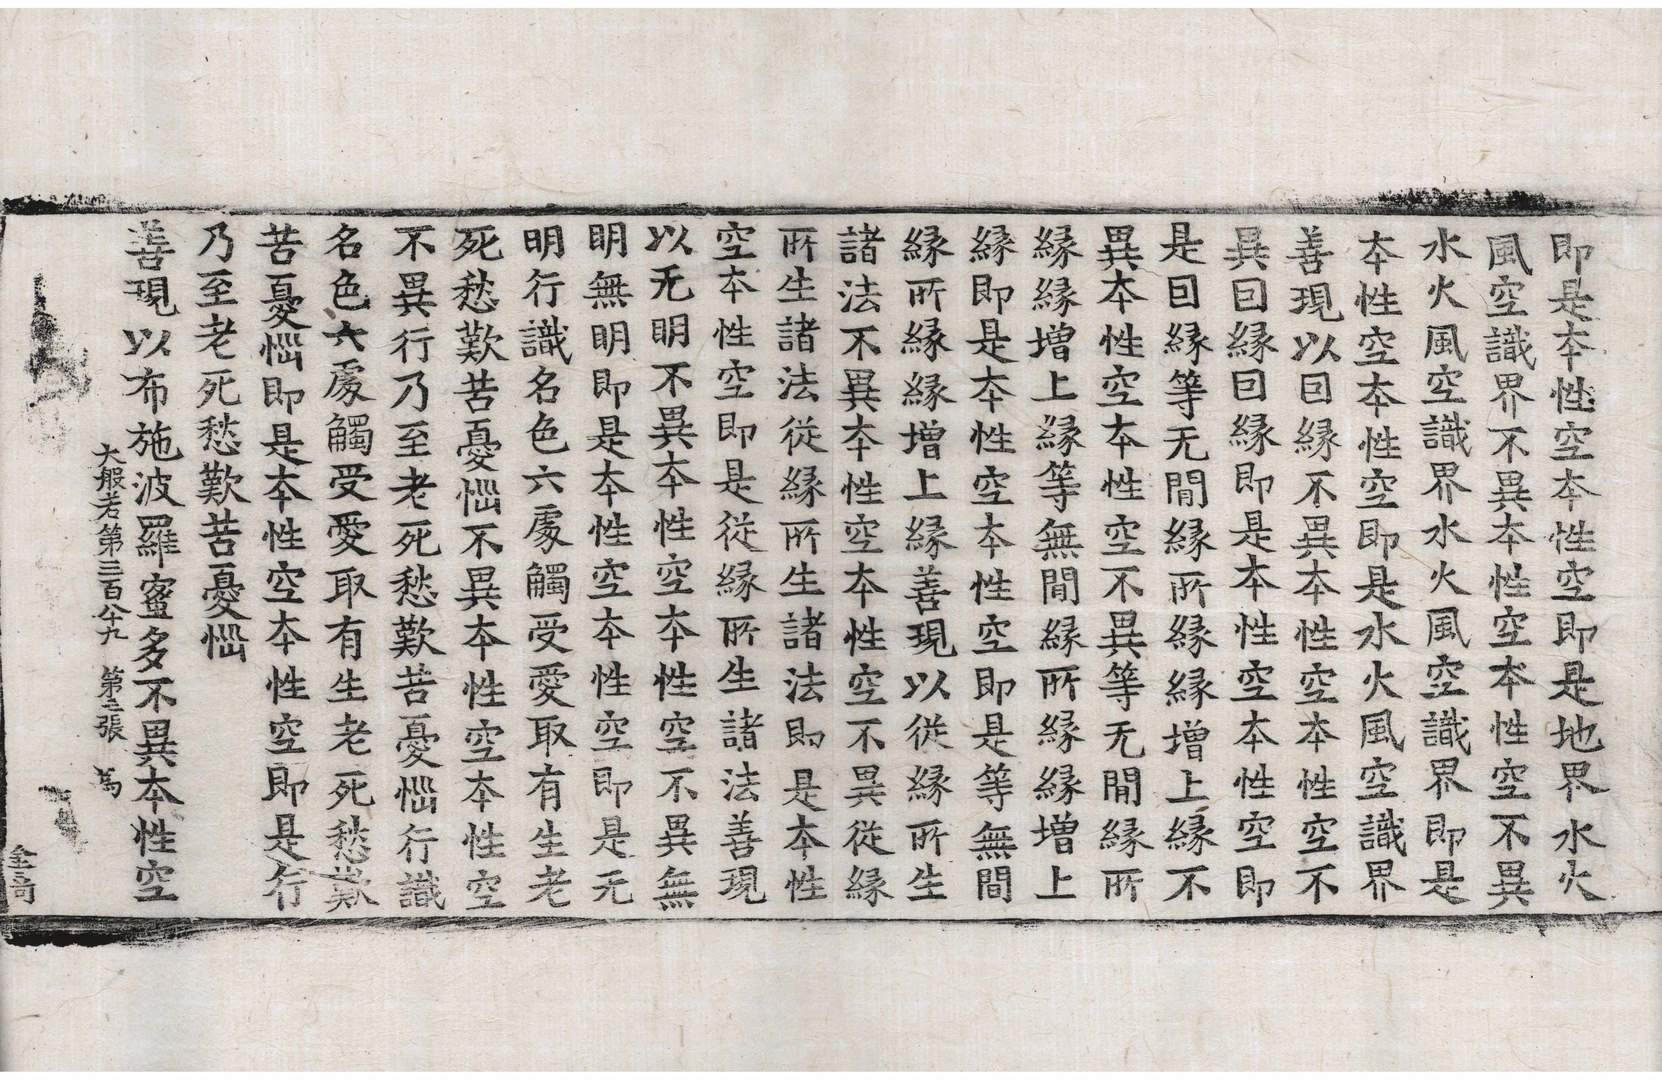 即是本性空本性空即是地界水火
風空識界不異本性空本性空不異
水火風空識界水火風空識界即是
本性空本性空即是水火風空識界
善現以因縁不異本性空本性空不
異因縁因縁即是本性空本性空即
是因縁等无間縁所縁縁增上縁不
異本性空本性空不異等无間縁所
縁縁增上縁等無間縁所縁縁增上
縁即是本性空本性空即是等無間
縁所縁縁增上縁善現以從縁所生
諸法不異本性空本性空不異從縁
所生諸法從縁所生諸法即是本性
空本性空即是從縁所生諸法善現
以无明不異本性空本性空不異無
明無明即是本性空本性空即是无
明行識名色六處觸受愛取有生老
死愁歎苦憂惱不異本性空本性空
不異行乃至老死愁歎苦憂惱行識
名色六處觸受愛取有生老死愁歎
苦憂惱即是本性空本性空即是行
乃至老死愁歎苦憂惱
善現以布施波羅蜜多不異本性空
大般若第三百八十九 第二張 爲